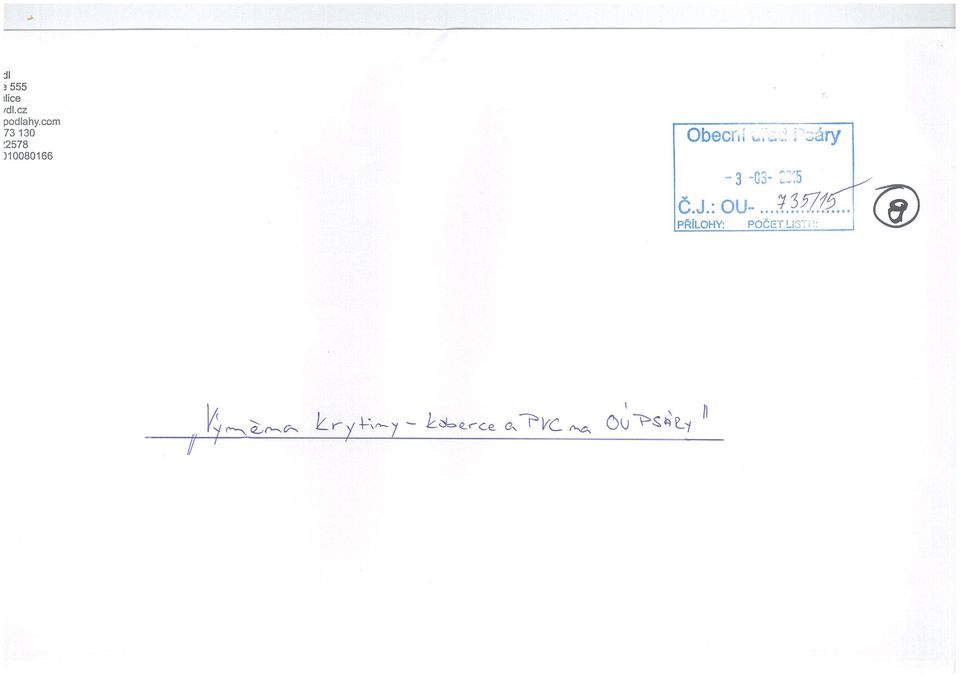 dl
555
lice
dl.cz
podlahy.com
73 130
2578
010080166
Obecní úřad Psáry
-3 -03- 2015
Č.J.: OU- ...735/15...
PŘÍLOHY: POČET LISTŮ:
8
„Výměna krytiny - koberce a PVC na OÚ PSÁRY"